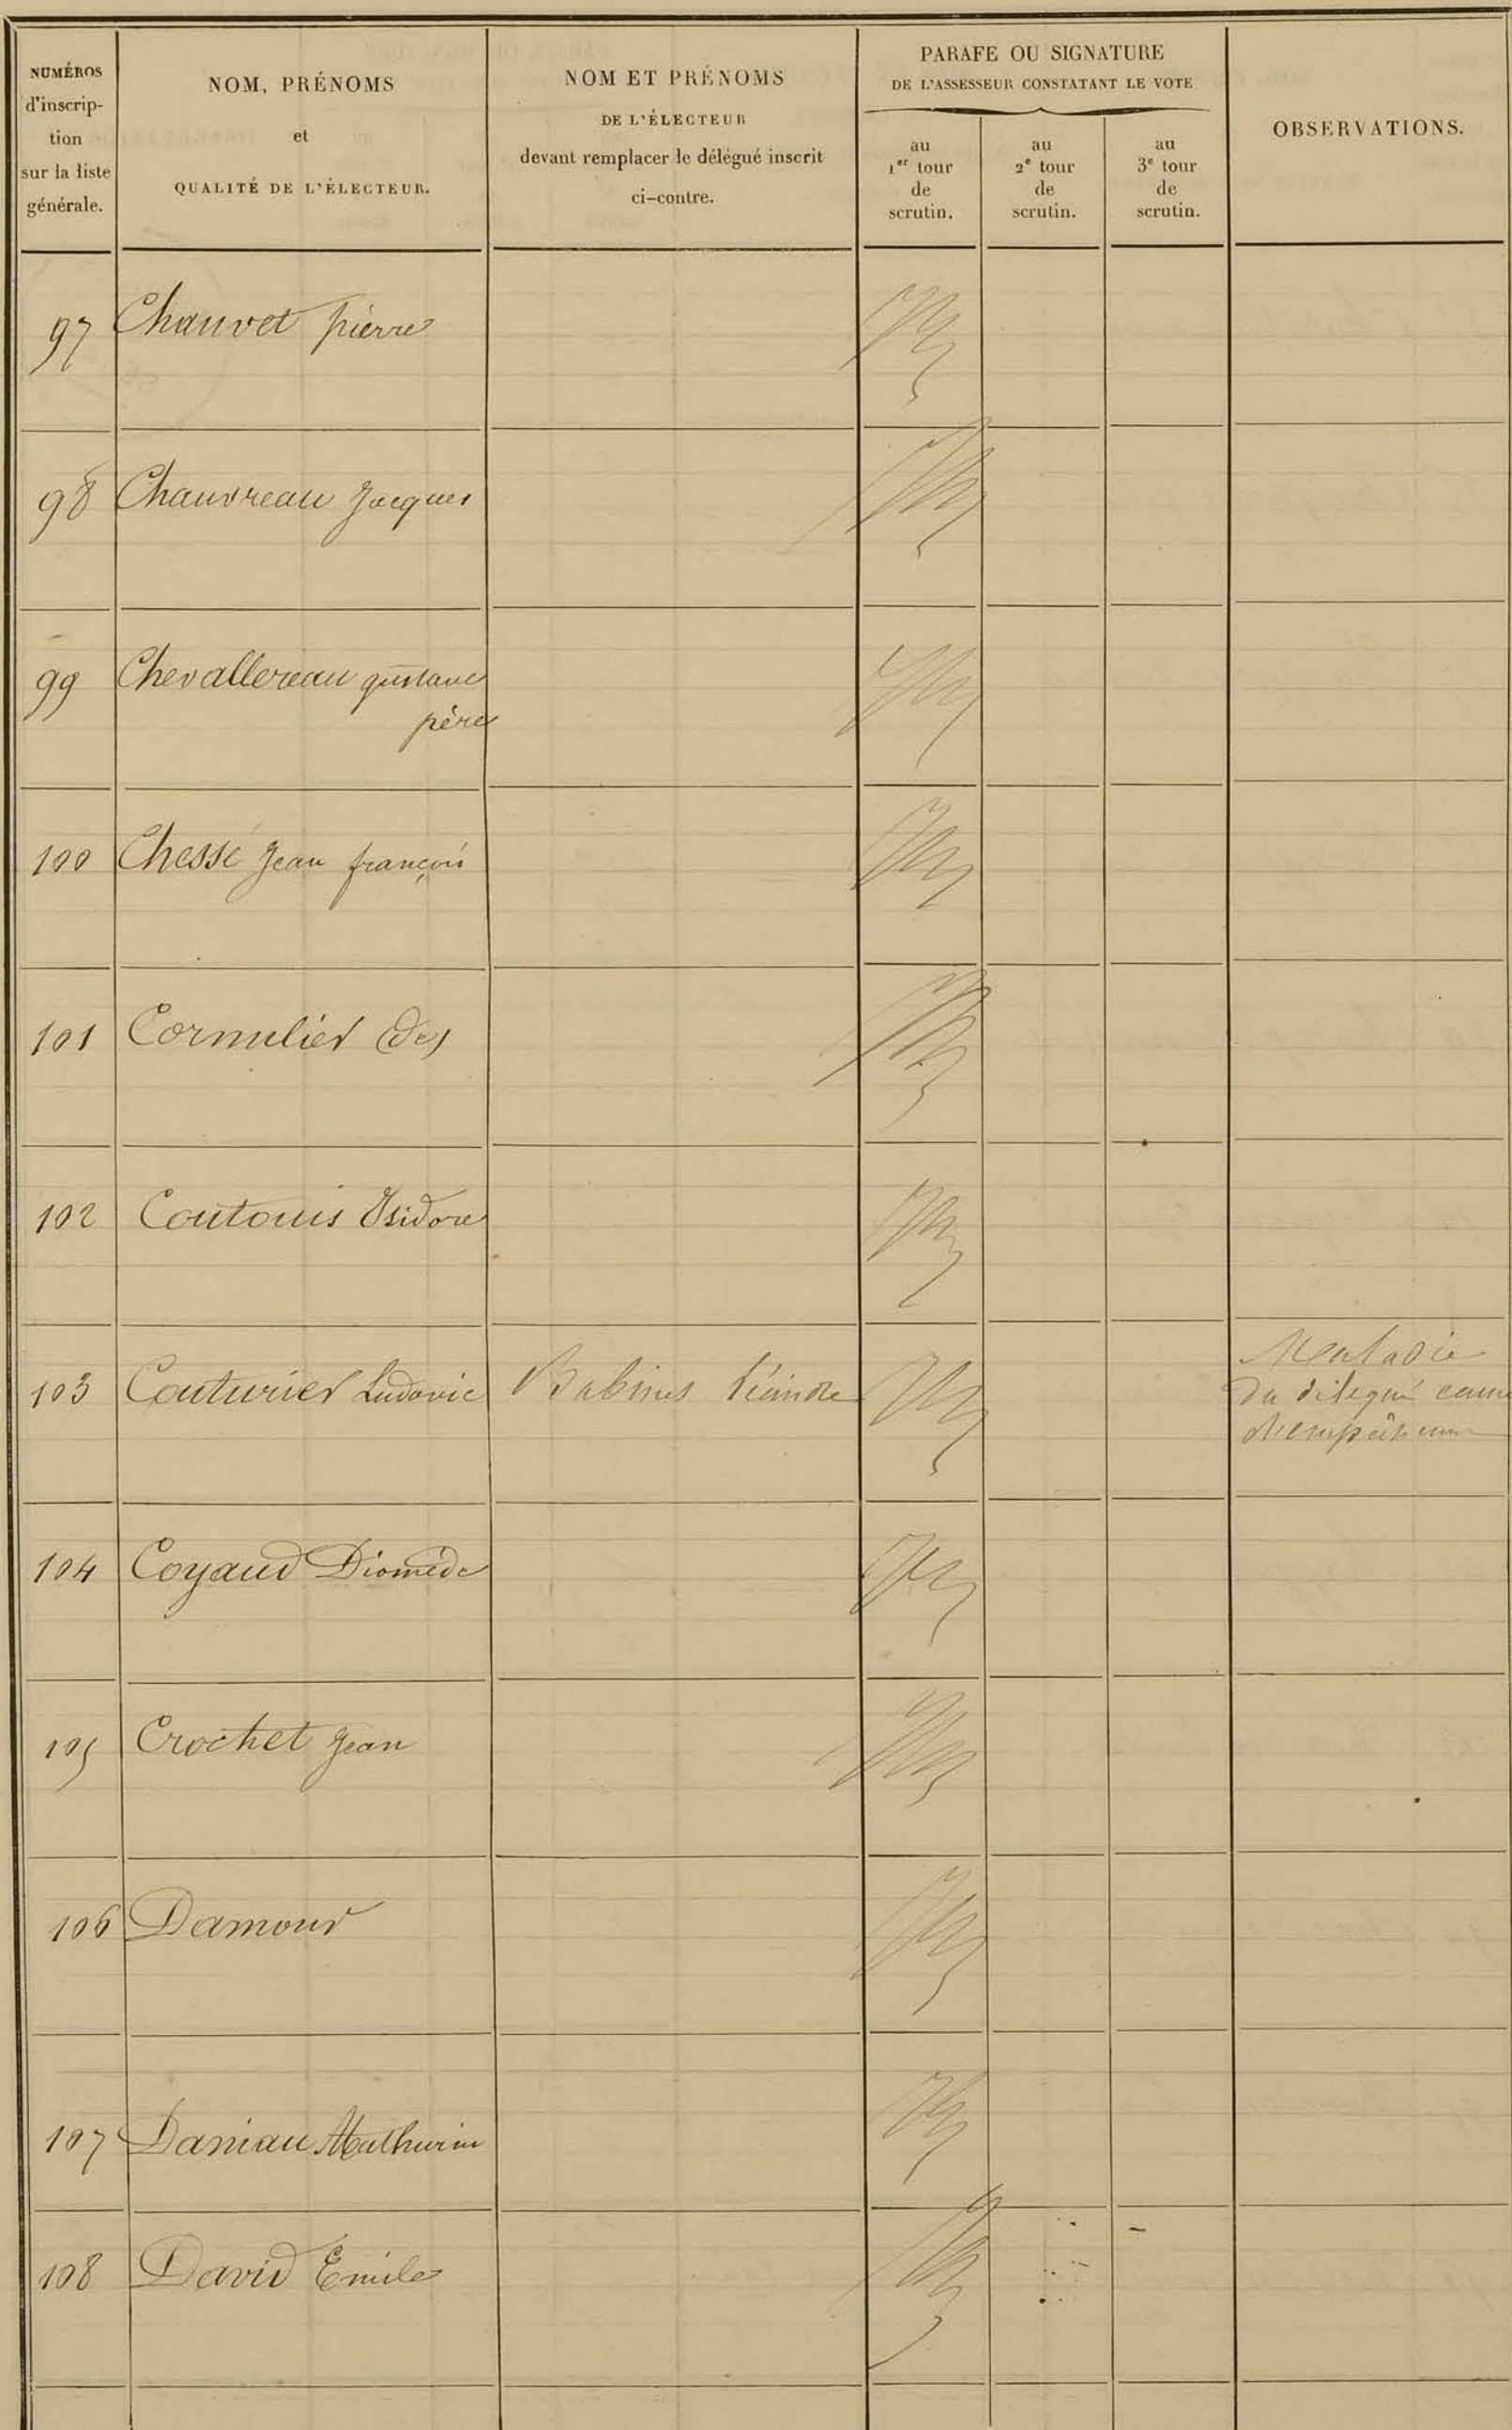 NUMÉROS
d'inscrip-
tion
sur la liste
générale.
NOM, PRÉNOMS
et
QUALITÉ DE L'ÉLECTEUR.
NOM ET PRÉNOMS
DE L'ÉLECTEUR
devant remplacer le délégué inscrit
ci-contre.
PARAFE OU SIGNATURE
DE L'ASSESSEUR CONSTATANT LE VOTE
au
1er tour
de
scrutin.
au
2e tour
de
scrutin.
au
3e tour
de
scrutin.
OBSERVATIONS.
97 Chauvet pierre
98 Chauvreau Jacques
99 Chevallereau gustave
père
100 Chessé Jean françois
101 Cornulier (de)
102 Coutouis Isidore
103 Couturier Ludovic Babinus Léandre Maladie
du délégué cause
d'empêchem
104 Coyaud Diomède
105 Crochet Jean
106 Damour
107 Daniau Mathurin
108 David Emile